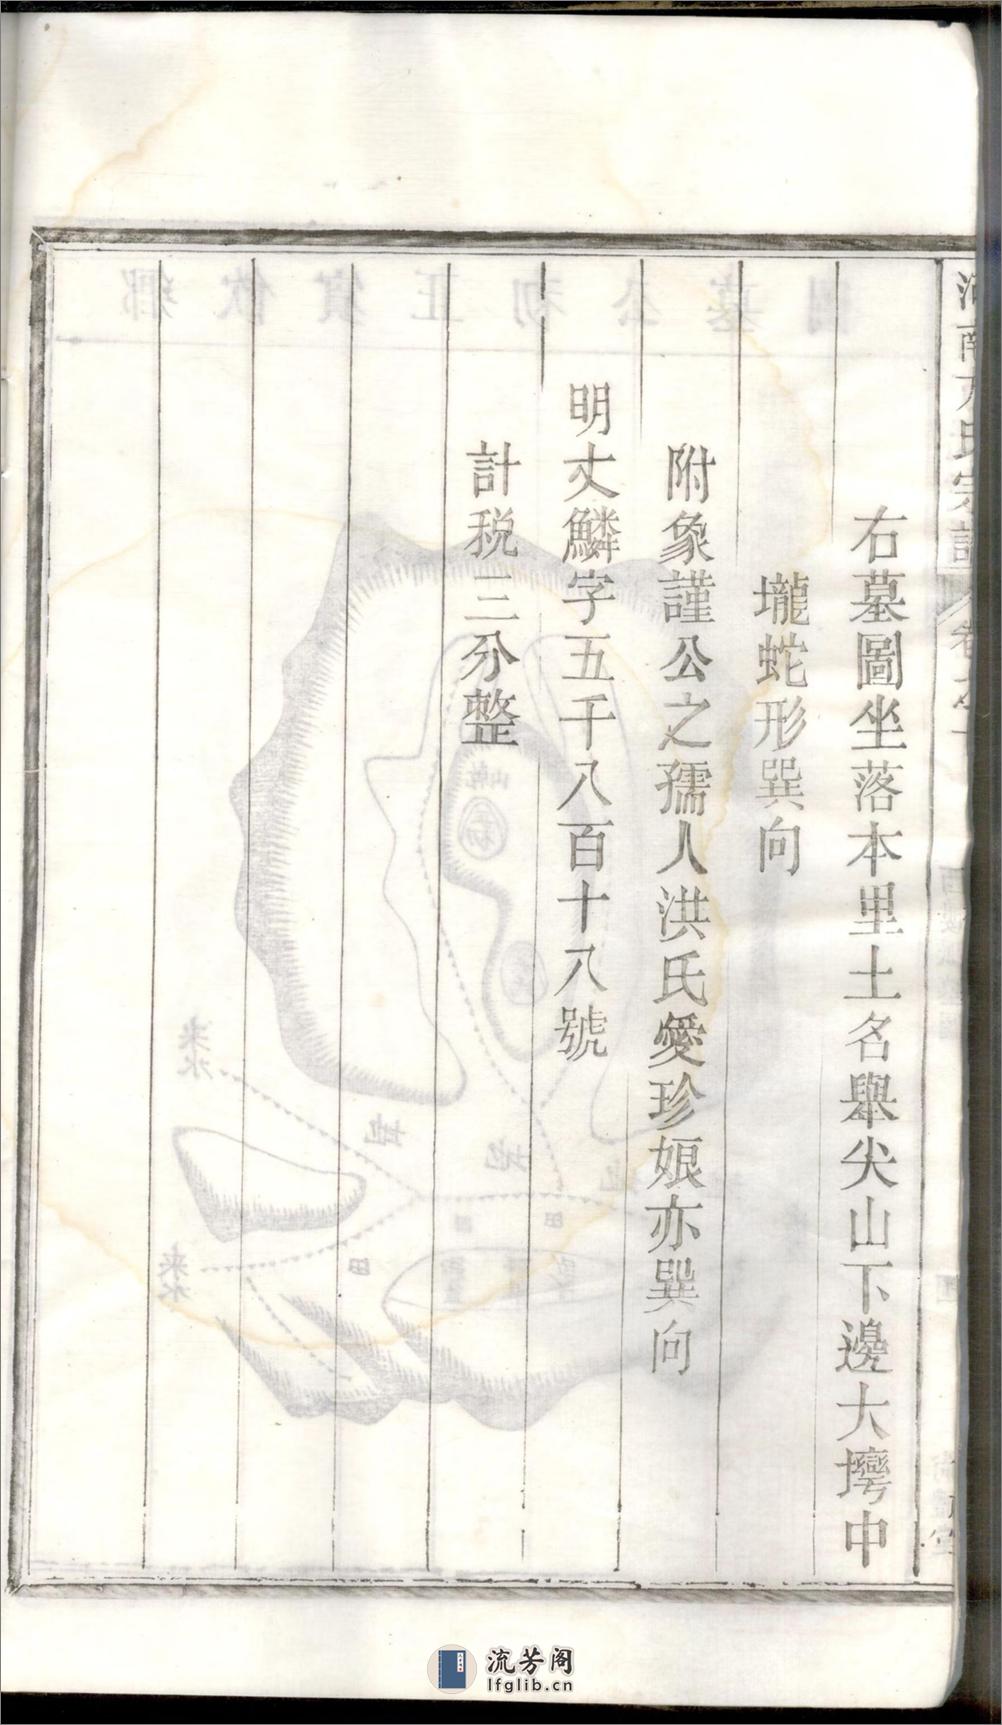 河南方氏宗譜
右墓圖坐落本里土名舉尖山下邊大塆中
壠蛇形巽向
附象謹公之孺人洪氏愛珍娘亦巽向
明丈鱗字五千八百十八號
計税三分整
流芳阁
lfglib.cn